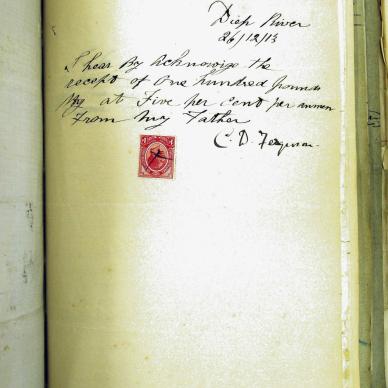 Diep River
26/12/13
I hear By Acknowige the
recept of One hundred pounds
at Five per cent per annen
From My Father
C. D. Ferguson